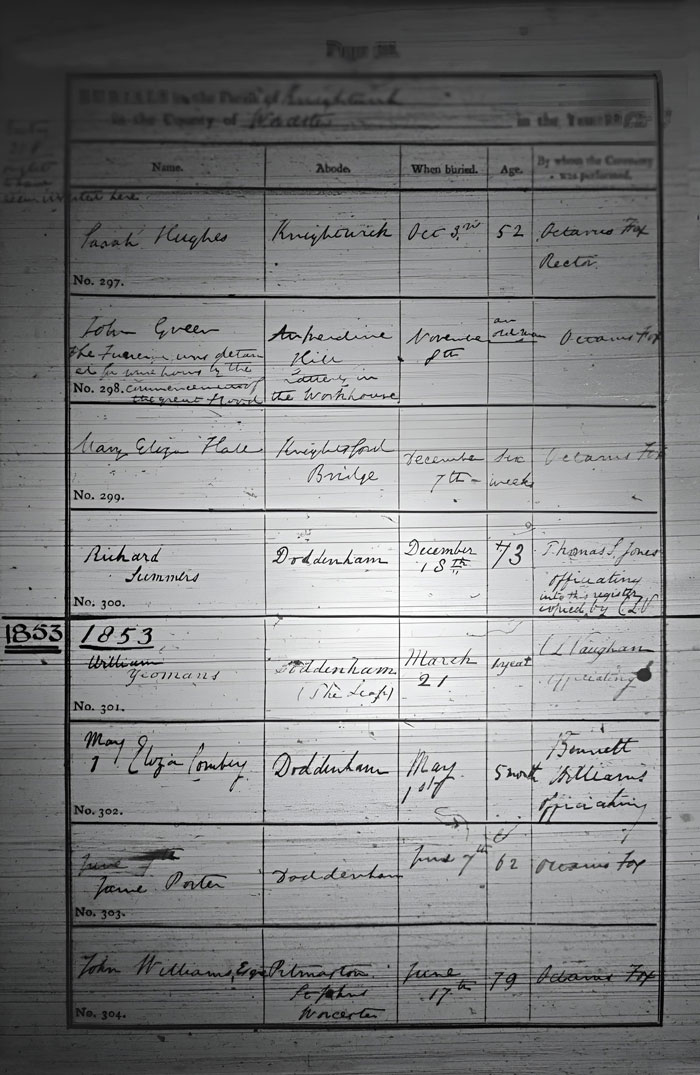 BURIALS in the Parish of Knightwick
in the County of Worcester in the Year 185
Name. Abode. When buried. Age. By whom the Ceremony
was performed.
here
Sarah Hughes Knightwick Oct 3rd 52 Octavus Fox
Rector
No. 297.
John Green Ankerdine November an old man Octavus Fox
Hill 8th
The Funeral was detain
ed for some hours by the latterly in
No. 298. commencement of the Workhouse
the great flood
Mary Eliza Hall Knightsford December Six Octavus Fox
Bridge 7th weeks
No. 299.
Richard Doddenham December 73 Thomas S. Jones
Summers 18th officiating
into this register
No. 300. copied by CLV
1853 1853
William Doddenham March 1 year CL Vaughan
Yeomans (The Leap) 21 officiating
No. 301.
May Bennett
1 Eliza Doddenham May 5 month Williams
1st officiating
No. 302.
June 7th
Jane Porter Doddenham June 7th 62 Octavus Fox
No. 303.
John Williams, Esqr Pitmaston June 79 Octavus Fox
St Johns 17th
No. 304. Worcester